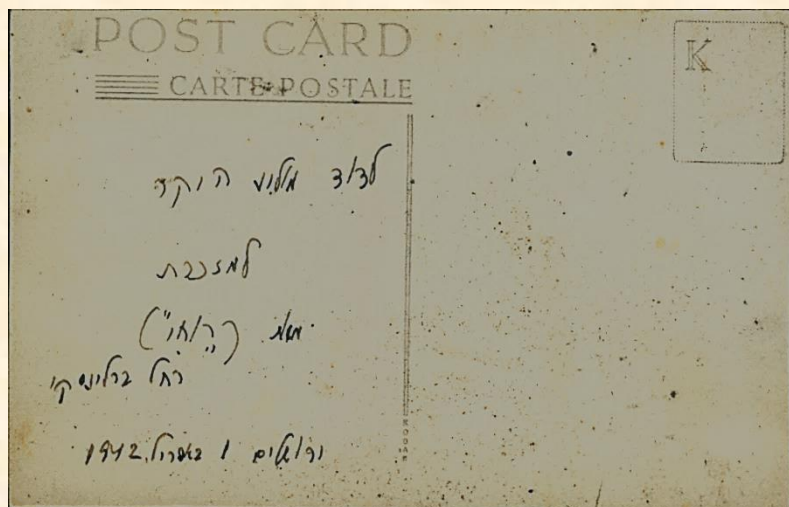 POST CARD
CARTE POSTALE
K
לדוד היקר
למזכרת
מאת ("רוחי")
רחל ברלינסקי
ירושלים 1 באפריל 1942
KODAK